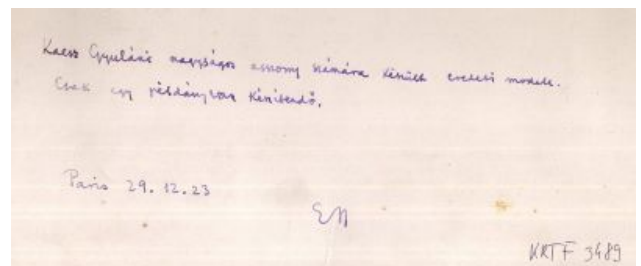 Kaesz Gyuláné nagyságos asszony számára készült eredeti modell.
Csak egy példányban készítendő.
Paris 29. 12. 23
KRTF 3489